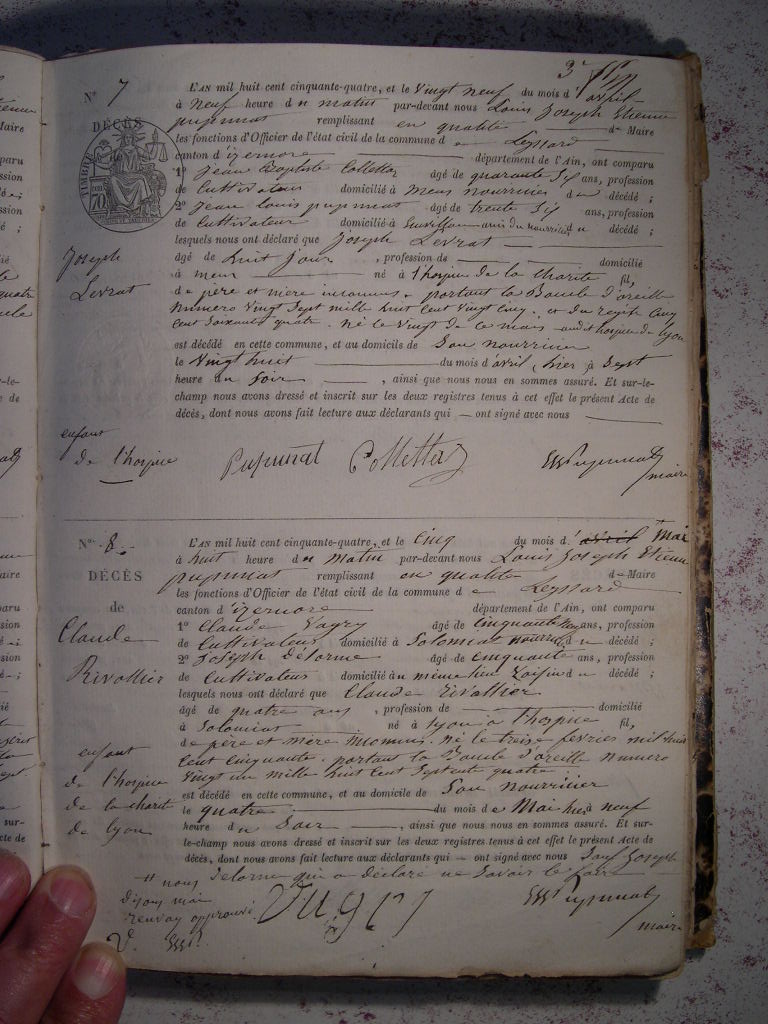 N° 7
DÉCÈS
TIMBRE
70
Joseph
Levrat
enfant
de l'hospice
L'AN mil huit cent cinquante-quatre, et le vingt neuf du mois d'avril
à neuf heure du matin par-devant nous Louis Joseph Etienne
pupunat remplissant en qualité de Maire
les fonctions d'Officier de l'état civil de la commune de Leyssard
canton d'izernore département de l'Ain, ont comparu
1° Jean Baptiste Colletta âgé de quarante six ans, profession
de Cultivateur domicilié à mens nourricier du décédé ;
2° Jean Louis pupunat âgé de trente six ans, profession
de Cultivateur domicilié à ami du nourricier du décédé ;
lesquels nous ont déclaré que Joseph Levrat
âgé de huit jour , profession de domicilié
à mens né à l'hospice de la Charité fil,
de père et mère inconnus, portant la Boucle d'oreille
numéro vingt sept mille huit cent vingt cinq, et du registre cinq
cent soixante quatre, né le vingt de ce mois audit hospice de lyon
est décédé en cette commune, et au domicile de son nourricier
le vingt huit du mois d'avril, hier à sept
heure du soir , ainsi que nous nous en sommes assuré. Et sur-le-
champ nous avons dressé et inscrit sur les deux registres tenus à cet effet le présent Acte de
décès, dont nous avons fait lecture aux déclarants qui — ont signé avec nous
Pupunat Colletta Pupunat
maire
N° 8.
DÉCÈS
de
Claude
Rivollier
enfant
de l'hospice
de la charité
de lyon
L'AN mil huit cent cinquante-quatre, et le cinq du mois d'avril Mai
à huit heure du matin par-devant nous Louis Joseph Etienne
pupunat remplissant en qualité de Maire
les fonctions d'Officier de l'état civil de la commune de Leyssard
canton d'izernore département de l'Ain, ont comparu
1° Claude Vugry âgé de cinquante ans, profession
de Cultivateur domicilié à Solomiat nourricier du décédé ;
2° Joseph Délorme âgé de cinquante ans, profession
de Cultivateur domicilié au même lieu voisin du décédé ;
lesquels nous ont déclaré que Claude Rivollier
âgé de quatre ans , profession de domicilié
à Solomiat né à lyon à l'hospice fil,
de père et mère inconnus, né le treize fevrier mil huit
cent cinquante, portant la Boucle d'oreille numero
vingt un mille huit cent septante quatre
est décédé en cette commune, et au domicile de son nourricier
le quatre du mois de Mai hier à neuf
heure du soir , ainsi que nous nous en sommes assuré. Et sur-
le-champ nous avons dressé et inscrit sur les deux registres tenus à cet effet le présent Acte de
décès, dont nous avons fait lecture aux déclarants qui — ont signé avec nous sauf Joseph
Delorme qui a déclaré ne savoir le faire
# nous
disons mai
renvoy approuvé
Vugry Pupunat
maire